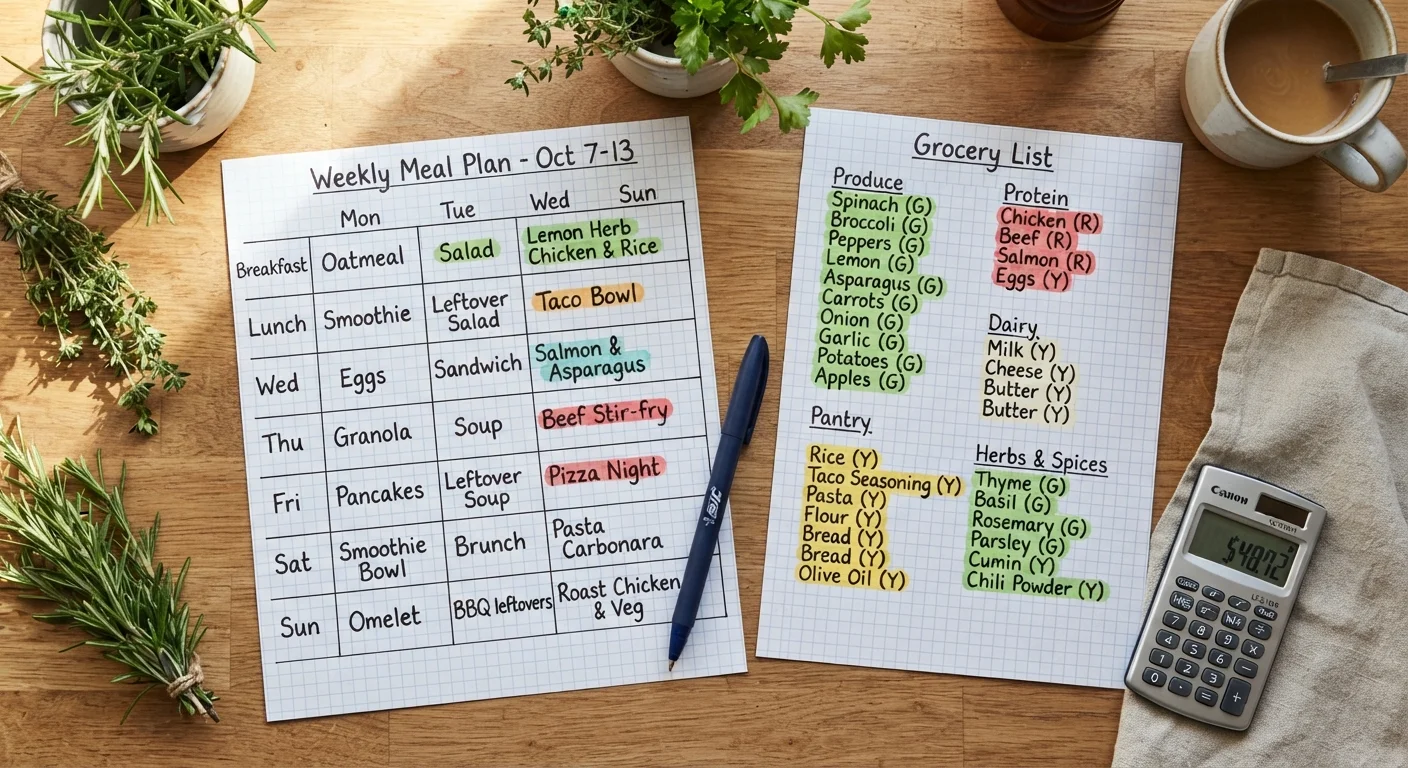 Weekly Meal Plan - Oct 7-13
Mon Tue Wed Sun
Breakfast Oatmeal Salad Lemon Herb Chicken & Rice
Lunch Smoothie Leftover Salad Taco Bowl
Wed Eggs Sandwich Salmon & Asparagus
Thu Granola Soup Beef Stir-fry
Fri Pancakes Leftover Soup Pizza Night
Sat Smoothie Bowl Brunch Pasta Carbonara
Sun Omelet BBQ leftovers Roast Chicken & Veg
BIC
Grocery List
Produce
Spinach (G)
Broccoli (G)
Peppers (G)
Lemon (G)
Asparagus (G)
Carrots (G)
Onion (G)
Garlic (G)
Potatoes (G)
Apples (G)
Pantry
Rice (Y)
Taco Seasoning (Y)
Pasta (Y)
Flour (Y)
Bread (Y)
Bread (Y)
Olive Oil (Y)
Protein
Chicken (R)
Beef (R)
Salmon (R)
Eggs (Y)
Dairy
Milk (Y)
Cheese (Y)
Butter (Y)
Butter (Y)
Herbs & Spices
Thyme (G)
Basil (G)
Rosemary (G)
Parsley (G)
Cumin (Y)
Chili Powder (Y)
Canon
7 8 9 ÷
4 5 6 x
1 2 3 −
0 . = +